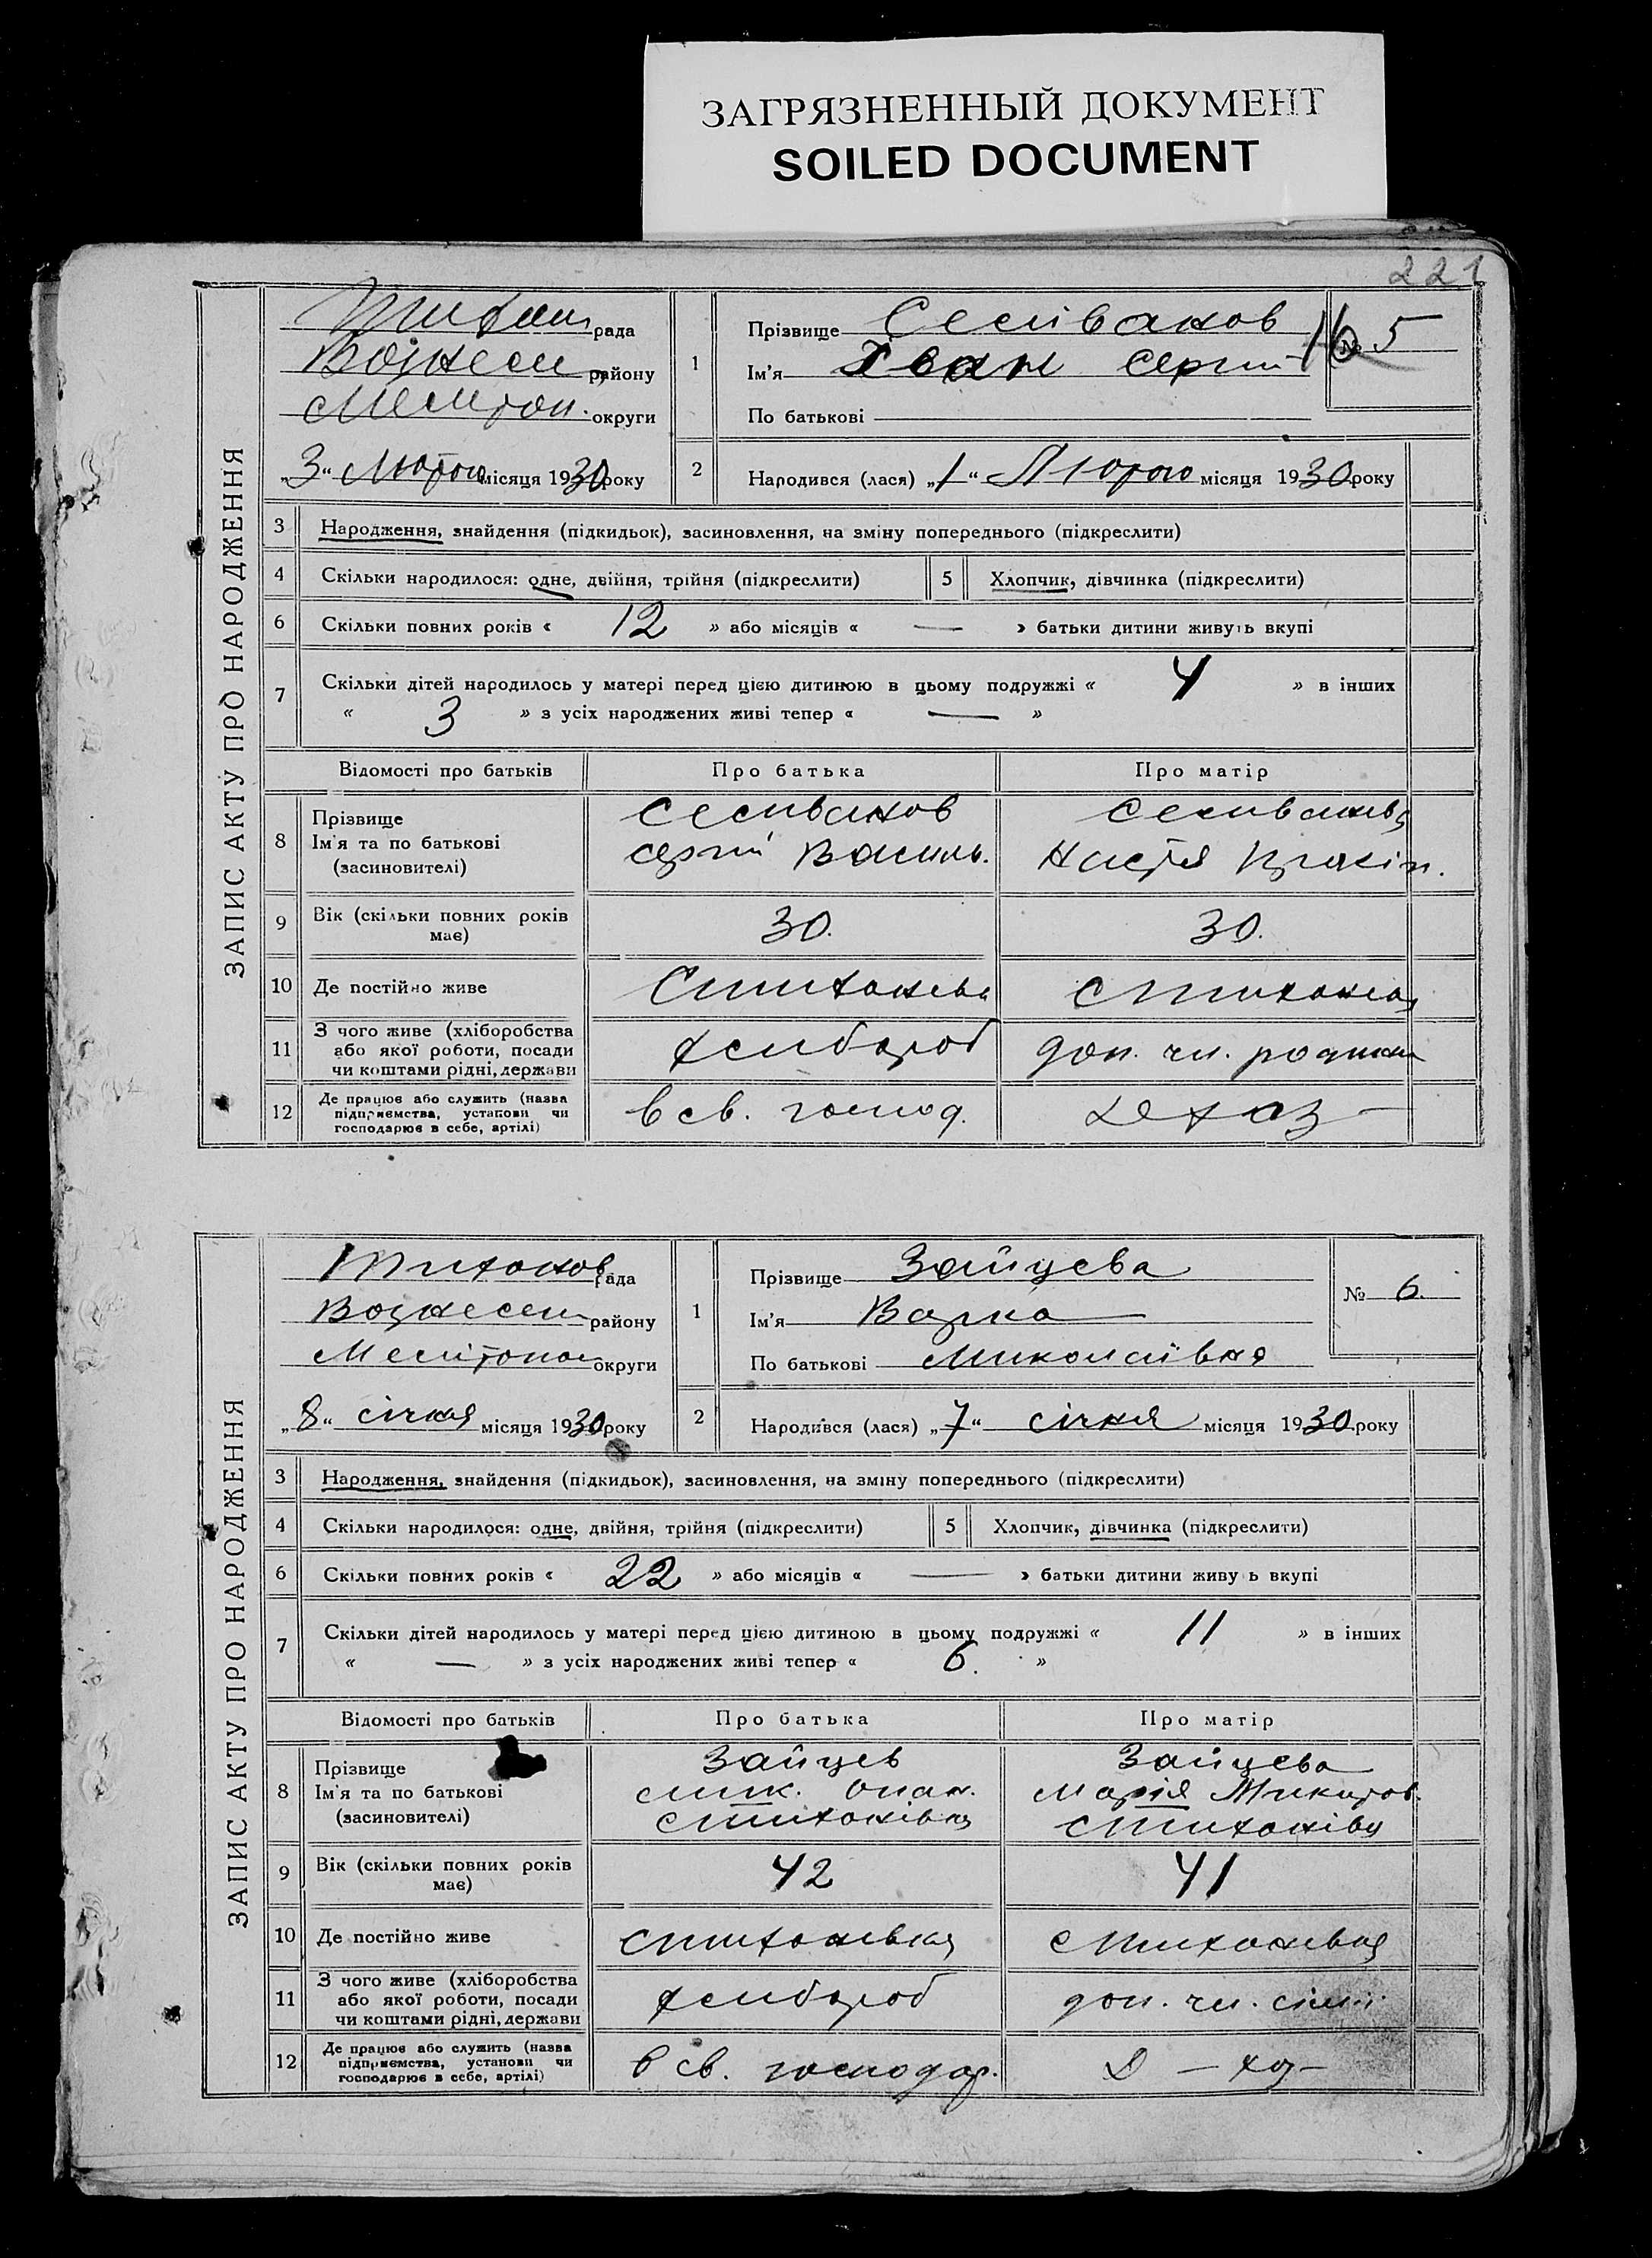 ЗАГРЯЗНЕННЫЙ ДОКУМЕНТ
SOILED DOCUMENT
221
ЗАПИС АКТУ ПРО НАРОДЖЕННЯ
рада
Вознесен району
Мелітоп. округи
„3“ Лютого місяця 1930 року
1 Прізвище Селіванов
Ім'я Іван Сергій
По батькові
№ 5
16
2 Народився (лася) „1“ Лютого місяця 1930 року
3 Народження, знайдення (підкидьок), засиновлення, на зміну попереднього (підкреслити)
4 Скільки народилося: одне, двійня, трійня (підкреслити) 5 Хлопчик, дівчинка (підкреслити)
6 Скільки повних років « 12 » або місяців « — » батьки дитини живуть вкупі
7 Скільки дітей народилось у матері перед цією дитиною в цьому подружжі « 4 » в інших
« 3 » з усіх народжених живі тепер « — »
Відомості про батьків Про батька Про матір
8 Прізвище Селиванов Селиванова
Ім'я та по батькові Сергій Василь. Настя
(засиновителі)
9 Вік (скільки повних років має) 30. 30.
10 Де постійно живе
11 З чого живе (хліборобства або якої роботи, посади чи коштами рідні, держави хлибороб доп. чл. родини
12 Де працює або служить (назва підприємства, установи чи господарює в себе, артілі) в св. господ.
ЗАПИС АКТУ ПРО НАРОДЖЕННЯ
Тихонов рада
Вознесен району
Мелітопол округи
„8“ січня місяця 1930 року
1 Прізвище Зайцева
Ім'я Варка
По батькові Миколаївна
№ 6.
2 Народився (лася) „7“ січня місяця 1930 року
3 Народження, знайдення (підкидьок), засиновлення, на зміну попереднього (підкреслити)
4 Скільки народилося: одне, двійня, трійня (підкреслити) 5 Хлопчик, дівчинка (підкреслити)
6 Скільки повних років « 22 » або місяців « — » батьки дитини живу ь вкупі
7 Скільки дітей народилось у матері перед цією дитиною в цьому подружжі « 11 » в інших
« — » з усіх народжених живі тепер « 6. »
Відомості про батьків Про батька Про матір
8 Прізвище Зайцев Зайцева
Ім'я та по батькові Мик. Опан. Марія Микитов.
(засиновителі) с Тихонівка с Тихонівк
9 Вік (скільки повних років має) 42 41
10 Де постійно живе с Тихоневка с Тихоневка
11 З чого живе (хліборобства або якої роботи, посади чи коштами рідні, держави хлибороб доп. чл. сімї
12 Де працює або служить (назва підприємства, установи чи господарює в себе, артілі) в св. господар.